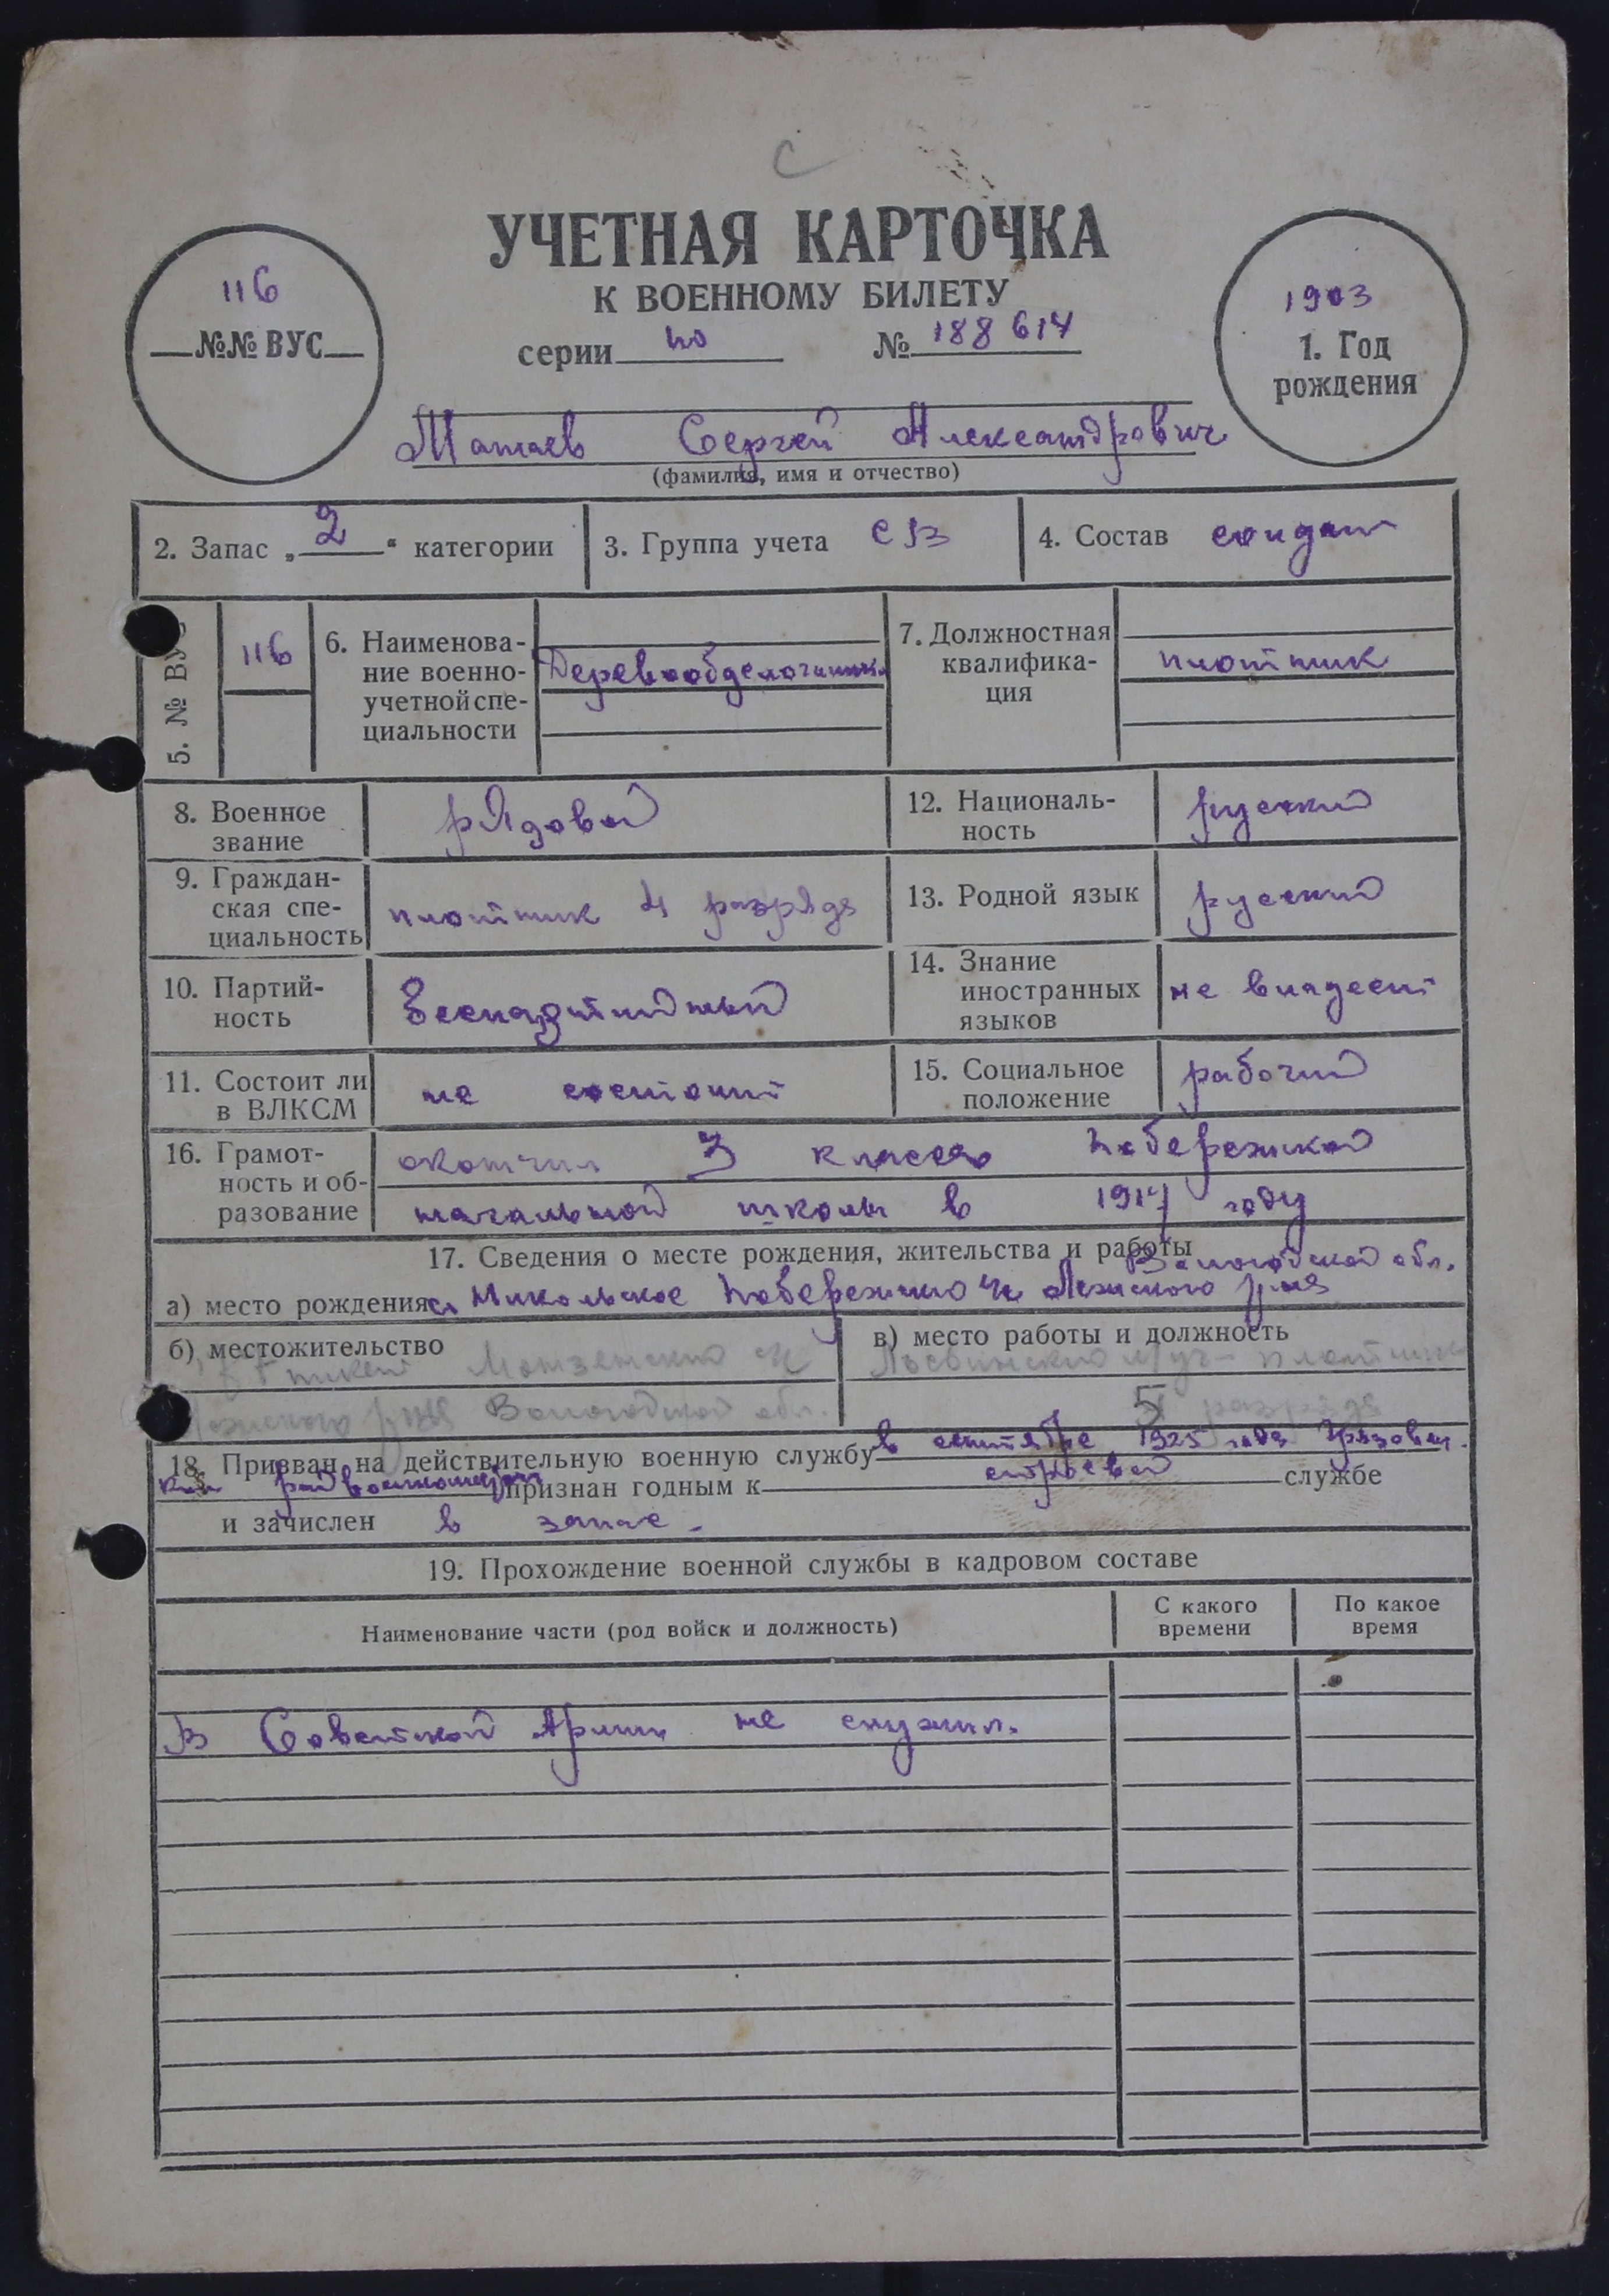 С
УЧЕТНАЯ КАРТОЧКА
К ВОЕННОМУ БИЛЕТУ
серии по № 188614
116
№№ ВУС
1903
1. Год
рождения
Сергей Александрович
(фамилия, имя и отчество)
2. Запас „2“ категории
3. Группа учета СВ
4. Состав солдат
5. № ВУС 116
6. Наименова-
ние военно-
учетной спе-
циальности
Деревообделочники
7. Должностная
квалифика-
ция
плотник
8. Военное
звание
рядовой
12. Националь-
ность
русский
9. Граждан-
ская спе-
циальность
плотник 4 разряда
13. Родной язык русский
10. Партий-
ность
беспартийный
14. Знание
иностранных
языков
не владеет
11. Состоит ли
в ВЛКСМ
не состоит
15. Социальное
положение
рабочий
16. Грамот-
ность и об-
разование
окончил 3 класса Побережской
начальной школы в 1917 году
17. Сведения о месте рождения, жительства и работы
Вологодской обл.
а) место рождения с. Никольское Побережского с/с Лежского р-на
б) местожительство
Монзенского с/с
Лежского р-на Вологодской обл.
в) место работы и должность
плотник
5 разряда
18. Призван на действительную военную службу в сентябре 1925 года Грязовец.
ким райвоенкоматом признан годным к строевой службе
и зачислен в запас.
19. Прохождение военной службы в кадровом составе
Наименование части (род войск и должность)
С какого
времени
По какое
время
В Советской Армии не служил.